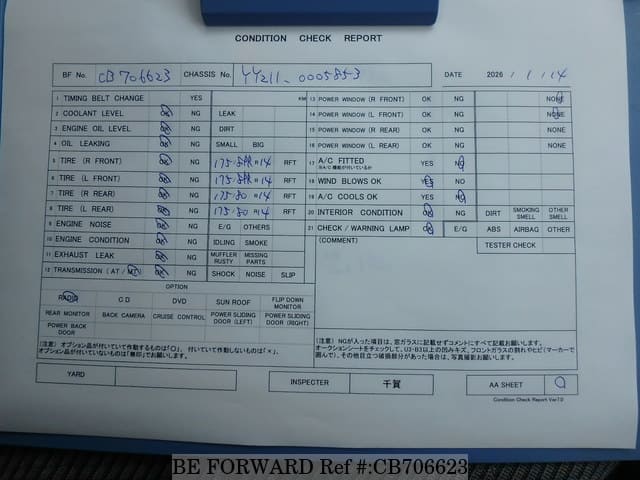 CONDITION CHECK REPORT
BF No. CB706623 CHASSIS No. YY211-0005853 DATE 2026 / 1 / 14
1 TIMING BELT CHANGE YES KM
2 COOLANT LEVEL OK NG LEAK
3 ENGINE OIL LEVEL OK NG DIRT
4 OIL LEAKING OK NG SMALL BIG
5 TIRE (R FRONT) OK NG 175/80R14 RFT
6 TIRE (L FRONT) OK NG 175/80R14 RFT
7 TIRE (R REAR) OK NG 175/80R14 RFT
8 TIRE (L REAR) OK NG 175/80R14 RFT
9 ENGINE NOISE OK NG E/G OTHERS
10 ENGINE CONDITION OK NG IDLING SMOKE
11 EXHAUST LEAK OK NG MUFFLER RUSTY MISSING PARTS
12 TRANSMISSION (AT / MT) OK NG SHOCK NOISE SLIP
OPTION
RADIO CD DVD SUN ROOF FLIP DOWN MONITOR
REAR MONITOR BACK CAMERA CRUISE CONTROL POWER SLIDING DOOR (LEFT) POWER SLIDING DOOR (RIGHT)
POWER BACK DOOR
(注意) オプション品が付いていて作動するものは「〇」、付いていて作動しないものは「×」、
オプション品が付いていないものは「無印」でお願いします。
13 POWER WINDOW (R FRONT) OK NG NONE
14 POWER WINDOW (L FRONT) OK NG NONE
15 POWER WINDOW (R REAR) OK NG NONE
16 POWER WINDOW (L REAR) OK NG NONE
17 A/C FITTED YES NO
※A/C 機能が付いているか
18 WIND BLOWS OK YES NO
19 A/C COOLS OK YES NO
20 INTERIOR CONDITION OK NG DIRT SMOKING SMELL OTHER SMELL
21 CHECK / WARNING LAMP OK E/G ABS AIRBAG OTHER
(COMMENT) TESTER CHECK
(注意) NGが入った項目は、窓ガラスに記載せずコメントにすべて記載お願いします。
オークションシートをチェックして、U3・B3以上の凹みキズ、フロントガラスの割れやヒビ(マーカーで
囲んで)、その他目立つ破損部分があった場合は、写真撮影お願いします。
YARD INSPECTOR 千賀 AA SHEET
Condition Check Report Ver7.0
BE FORWARD Ref #:CB706623